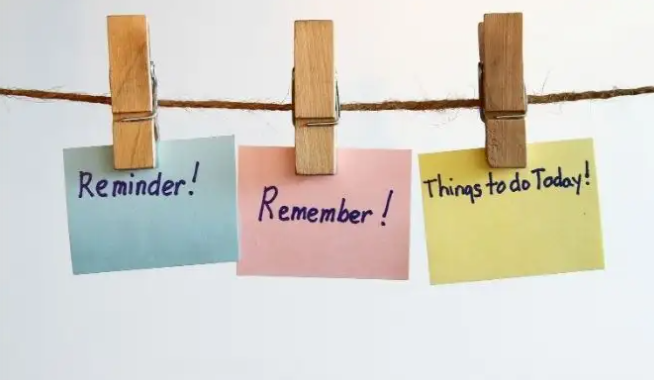 Reminder!
Remember!
Things to do Today!